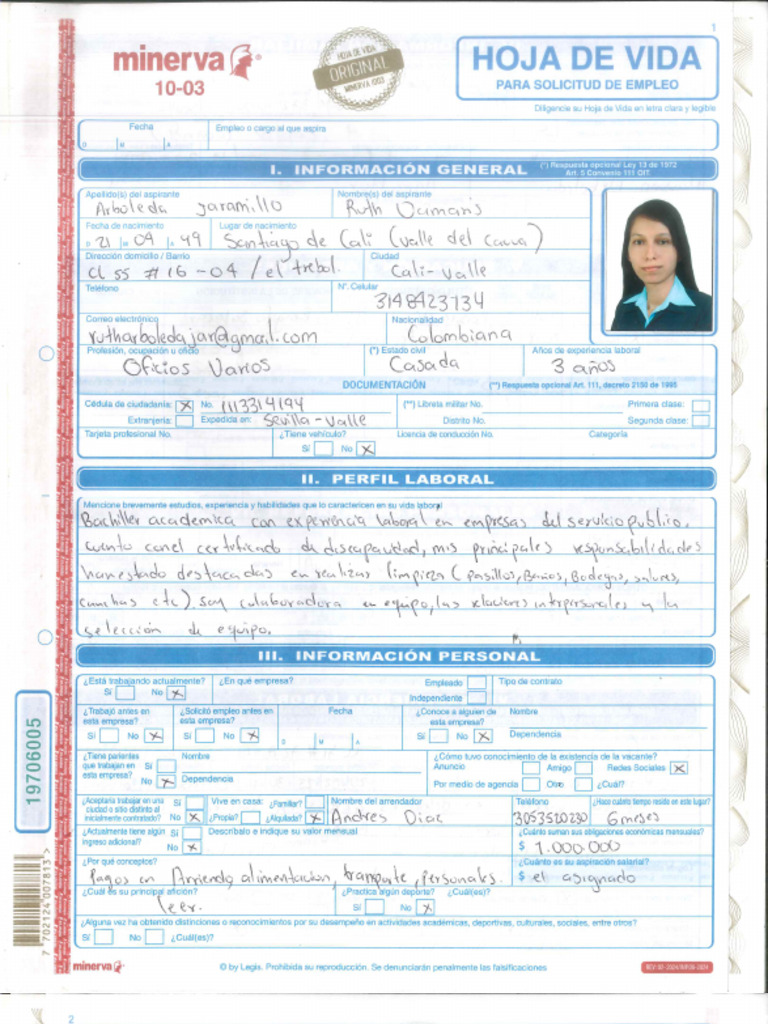 1
minerva
10-03
HOJA DE VIDA
ORIGINAL
MINERVA 1003
HOJA DE VIDA
PARA SOLICITUD DE EMPLEO
Diligencie su Hoja de Vida en letra clara y legible
Fecha Empleo o cargo al que aspira
D M A
I. INFORMACIÓN GENERAL (*) Respuesta opcional Ley 13 de 1972
Art. 5 Convenio 111 OIT.
Apellido(s) del aspirante Nombre(s) del aspirante
Arboleda Jaramillo Ruth Damaris
Fecha de nacimiento Lugar de nacimiento
D 21 M 09 A 99 Santiago de Cali (Valle del Cauca)
Dirección domicilio / Barrio Ciudad
CL 55 # 16 - 04 / el trebol. Cali-Valle
Teléfono N°. Celular
3148423734
Correo electrónico Nacionalidad
rutharboledajar@gmail.com Colombiana
Profesión, ocupación u oficio (*) Estado civil Años de experiencia laboral
Oficios Varios Casada 3 años
DOCUMENTACIÓN (**) Respuesta opcional Art. 111, decreto 2150 de 1995
Cédula de ciudadanía: X No. 1113314194 (**) Libreta militar No. Primera clase:
Extranjería: Expedida en: Sevilla-Valle Distrito No. Segunda clase:
Tarjeta profesional No. ¿Tiene vehículo? Licencia de conducción No. Categoría
Sí No X
II. PERFIL LABORAL
Mencione brevemente estudios, experiencia y habilidades que lo caractericen en su vida laboral
Bachiller academica con experiencia laboral en empresas del servicio publico.
cuento con el certificado de discapacidad, mis principales responsabilidades
han estado destacadas en realizar limpieza (pasillos, Baños, Bodegas, salones,
canchas etc). soy colaboradora en equipo, las relaciones interpersonales y la
selección de equipo.
III. INFORMACIÓN PERSONAL
¿Está trabajando actualmente? ¿En qué empresa? Empleado Tipo de contrato
Sí No X Independiente
¿Trabajó antes en esta empresa? ¿Solicitó empleo antes en esta empresa? Fecha ¿Conoce a alguien de esta empresa? Nombre
Sí No X Sí No X D M A Sí No X Dependencia
¿Tiene parientes que trabajan en esta empresa? Sí Nombre ¿Cómo tuvo conocimiento de la existencia de la vacante?
Anuncio Amigo Redes Sociales X
No X Dependencia Por medio de agencia Otro ¿Cuál?
¿Aceptaría trabajar en una ciudad o sitio distinto al inicialmente contratado? Sí Vive en casa: ¿Familiar? Nombre del arrendador Teléfono ¿Hace cuánto tiempo reside en este lugar?
No X ¿Propia? ¿Alquilada? X Andres Diaz 3053520230 6 meses
¿Actualmente tiene algún ingreso adicional? Sí Descríbalo e indique su valor mensual ¿Cuánto suman sus obligaciones económicas mensuales?
No X $ 1.000.000
¿Por qué conceptos? ¿Cuánto es su aspiración salarial?
Pagos en Arriendo, alimentacion, transporte, personales. $ el asignado
¿Cuál es su principal afición? ¿Practica algún deporte? ¿Cuál(es)?
Leer. Sí No X
¿Alguna vez ha obtenido distinciones o reconocimientos por su desempeño en actividades académicas, deportivas, culturales, sociales, entre otros?
Sí No ¿Cuál(es)?
19706005
7 702124 007813 >
minerva © by Legis. Prohibida su reproducción. Se denunciarán penalmente las falsificaciones
2